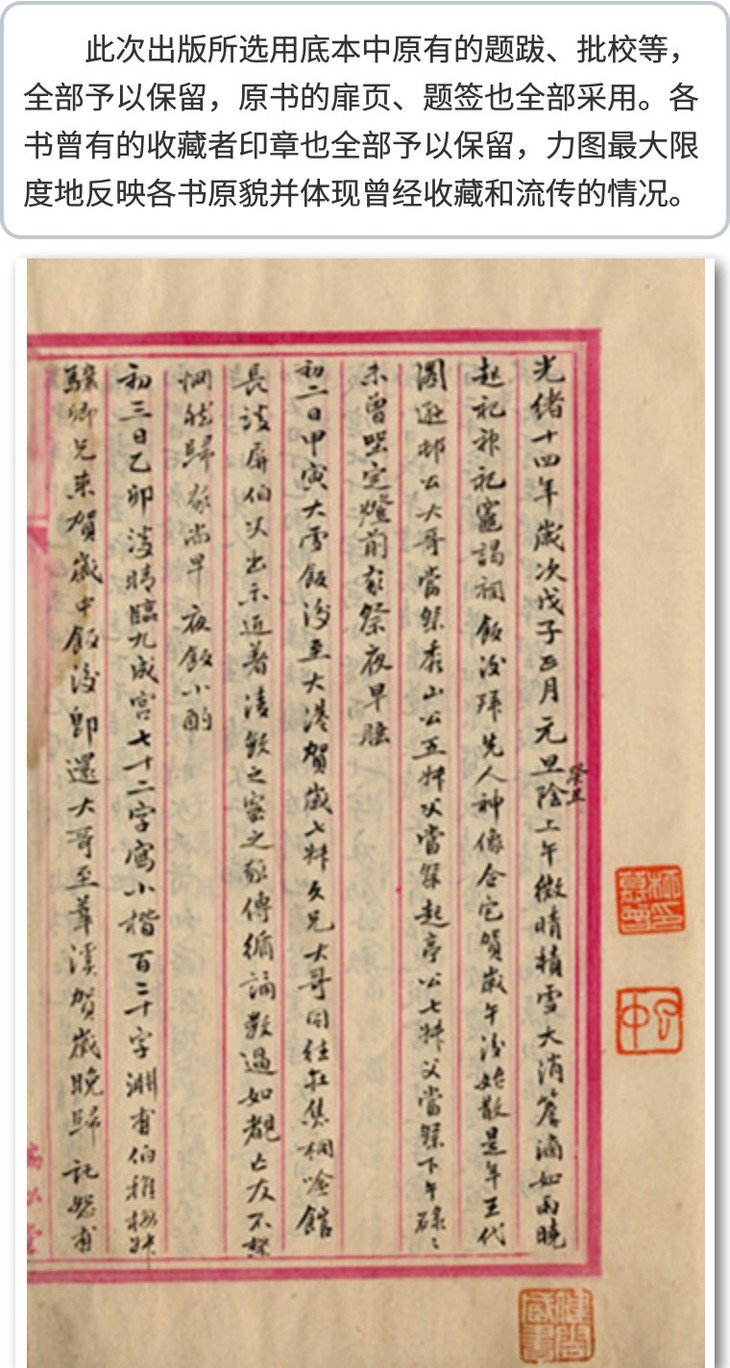 此次出版所选用底本中原有的题跋、批校等，
全部予以保留，原书的扉页、题签也全部采用。各
书曾有的收藏者印章也全部予以保留，力图最大限
度地反映各书原貌并体现曾经收藏和流传的情况。
光緒十四年歲次戊子正月元旦癸丑陰上午微晴積雪大消簷滴如雨曉
起祀神祀竈謁祠飯後拜先人神像合宅賀歲午後始散是年五代
圖逊邨公大哥當祭秀山公五牀父當祭起亭公七牀父當祭下午碌〻
未曾坐定燈前家祭夜早睡
初二日甲寅大雪飯後至大港賀歲七牀父兄大哥同往在焦桐吟館
長談屏伯丈出示近著淩欽之室之家傳循誦數過如覩亡友不禁
惘然歸家尚早 夜飯小酌
初三日乙卯後晴臨九成宮七十二字寫小楷百二十字淵甫伯雅梅牀
驥卿兄來賀歲中飯後即還大哥至葦溪賀歲晚歸 託恕甫